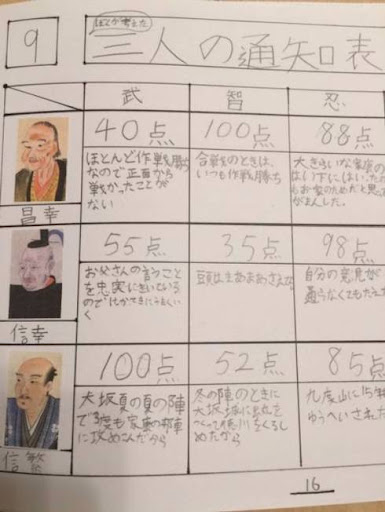 9
ぼくが考えた
三人の通知表
武 智 忍
40点 100点 88点
昌幸
ほとんど作戦勝ち
なので正面から
戦かったことが
ない
合戦のときは、
いつも作戦勝ち
大きらいな家康の
はい下にはい
もお家のためだと思
がまんした。
55点 35点 98点
信幸
お父さんの言うこと
を忠実にきいている
ので
く
頭はまあまあさえ
自分の意見が
通らなくてもたえ
100点 52点 85点
信繁
大坂夏の夏の陣
で3度も家康の本陣
に攻めこんだから
冬の陣のときに
大坂城に出丸を
つくって徳川をくるし
めたから
九度山に15年
ゆうへいされ
16